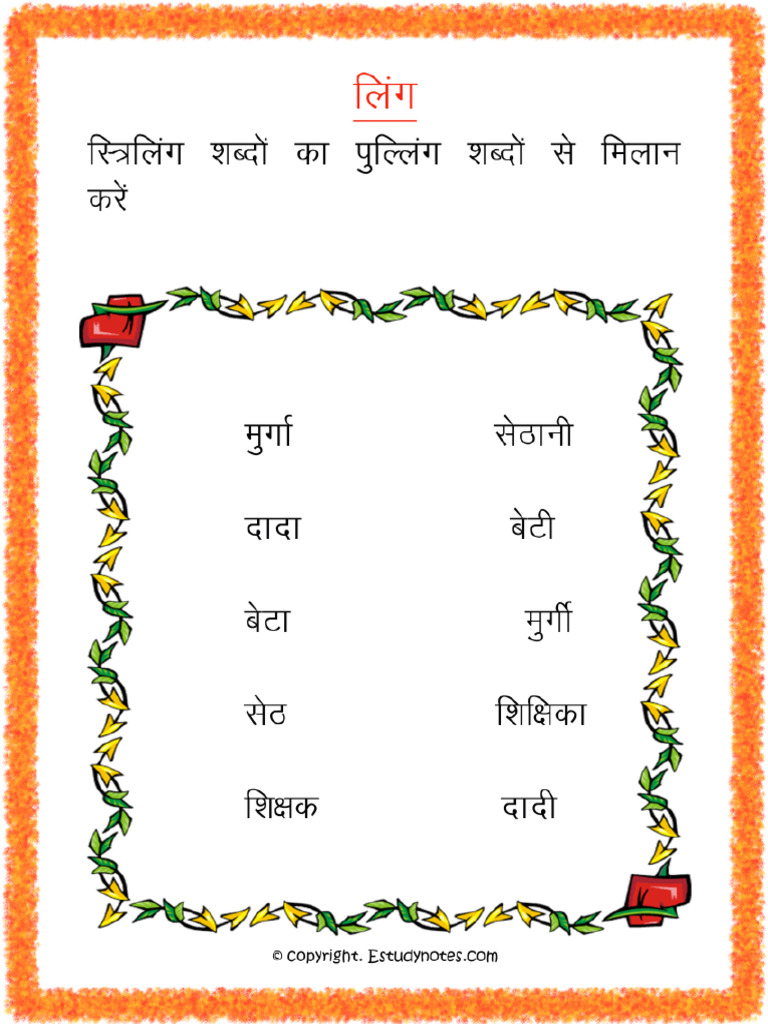 लिंग
स्त्रिलिंग शब्दों का पुल्लिंग शब्दों से मिलान
करें
मुर्गा सेठानी
दादा बेटी
बेटा मुर्गी
सेठ शिक्षिका
शिक्षक दादी
© Copyright. Estudynotes.com